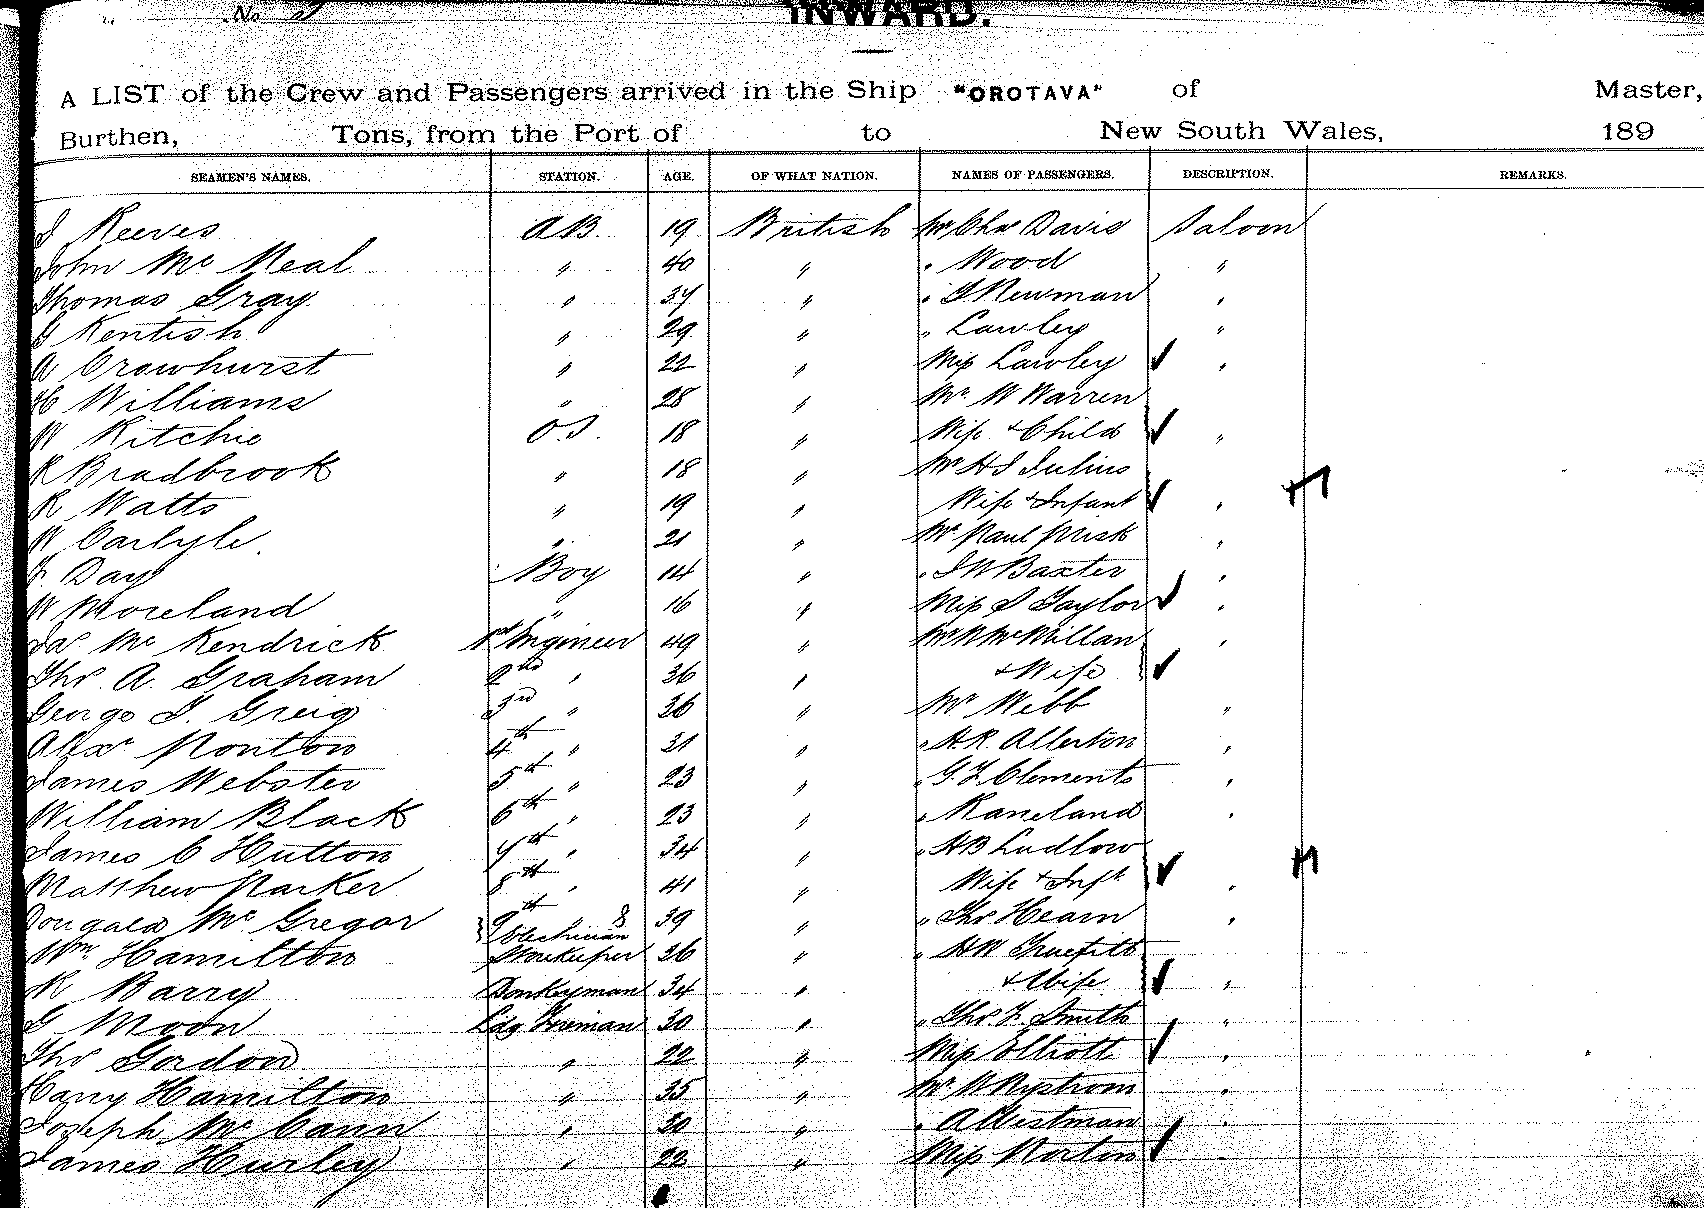 No
INWARD.
A LIST of the Crew and Passengers arrived in the Ship "OROTAVA" of Master,
Burthen, Tons, from the Port of to New South Wales, 189
SEAMEN'S NAMES. STATION. AGE. OF WHAT NATION. NAMES OF PASSENGERS. DESCRIPTION. REMARKS.
J Reeves AB. 19 British Mr Chas Davis Saloon
John Mc Neal " 40 " " Wood "
Thomas Gray " 37 " " G Newman "
G Kentish " 29 " " Lawley "
A Crowhurst " 22 " Miss Lawley "
H Williams " 28 " Mr W Warren
W Ritchie O.S. 18 " Wife + Child "
R Bradbrook " 18 " Mr H J Julius
R Watts " 19 " Wife + Infant "
W Carlyle " 21 " Mr Paul Prisk "
J. Day Boy 14 " " J W Baxter "
W Moreland " 16 " Miss S Taylor "
Jas Mc Kendrick 1st Engineer 49 " Mr N McMillan "
Thos A. Graham 2nd " 36 " + Wife
George J. Greig 3rd " 36 " Mr Webb "
Alexr Ronton 4th " 31 " " H.R. Allerton "
James Webster 5th " 23 " " G. F. Clements "
William Black 6th " 23 " " Raneland "
James C Hutton 7th " 34 " " H B Ludlow
Matthew Parker 8th " 41 " Wife + Inft "
Dougald Mc Gregor 9th " & 39 " " Thos Hearn "
Electrician
Wm Hamilton Storekeeper 36 " " H W
R Barry Donkeyman 34 " + Wife "
G Moon Ldg Fireman 30 " " Thos F. Smith "
Thos Gordon " 22 " Miss Elliott "
Harry Hamilton " 35 " Mr N Nystrom "
Joseph Mc Cann " 30 " " A Westman "
James Hurley " 22 " Miss Norton "